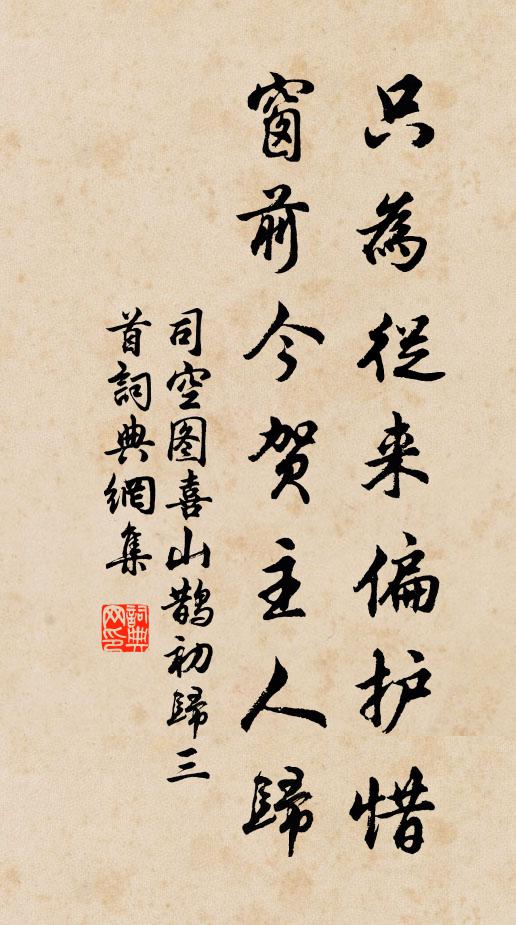 只為從来偏护惜
窗前今贺主人歸
司空图喜山鹊初歸三
首詞典網集
詞典网印